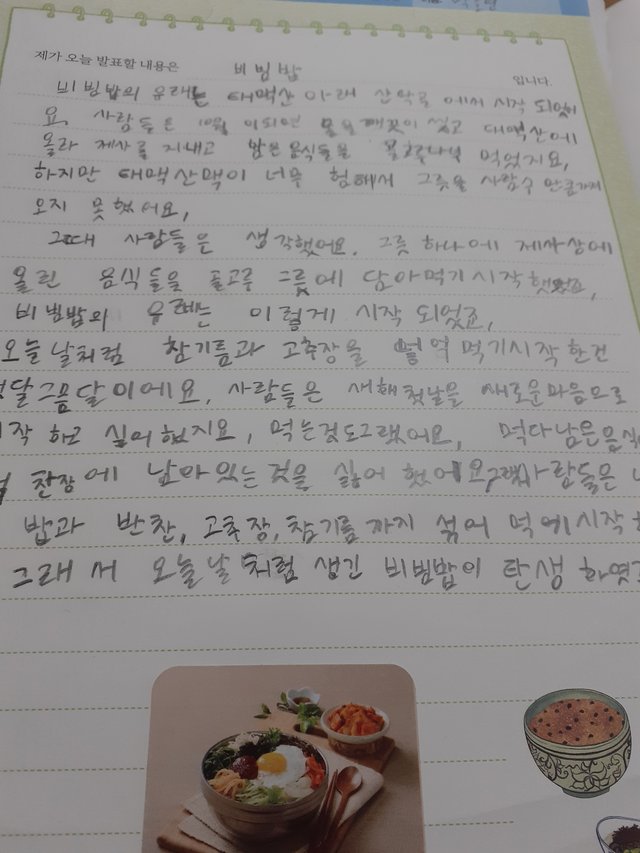 제가 오늘 발표할 내용은 비빔밥 입니다.
비빔밥의 유래는 태백산 아래 산악로 에서 시작 되었어
요. 사람들은 10월 이되면 몸을 깨끗이 씻고 태백산에
올라 제사를 지내고 남은음식들을 먹었지요,
하지만 태백산맥이 너무 험해서 그릇을 사람수 만큼가져
오지 못했어요,
그때 사람들은 생각했어요. 그릇 하나에 제사상에
올린 음식들을 골고루 그릇에 담아먹기시작했죠,
비빔밥의 유래는 이렇게 시작 되었죠,
오늘날처럼 참기름과 고추장을 먹기시작한건
달그믐달이에요, 사람들은 새해첫날을 새로운마음으로
작 하고 싶어했지요, 먹는것도그랬어요, 먹다남은음식
찬장에 남아있는것을 싫어 했어요,그래서사람들은
밥과 반찬, 고추장,참기름까지 섞어 먹에시작
그래서 오늘날 처럼 생긴 비빔밥이 탄생 하였